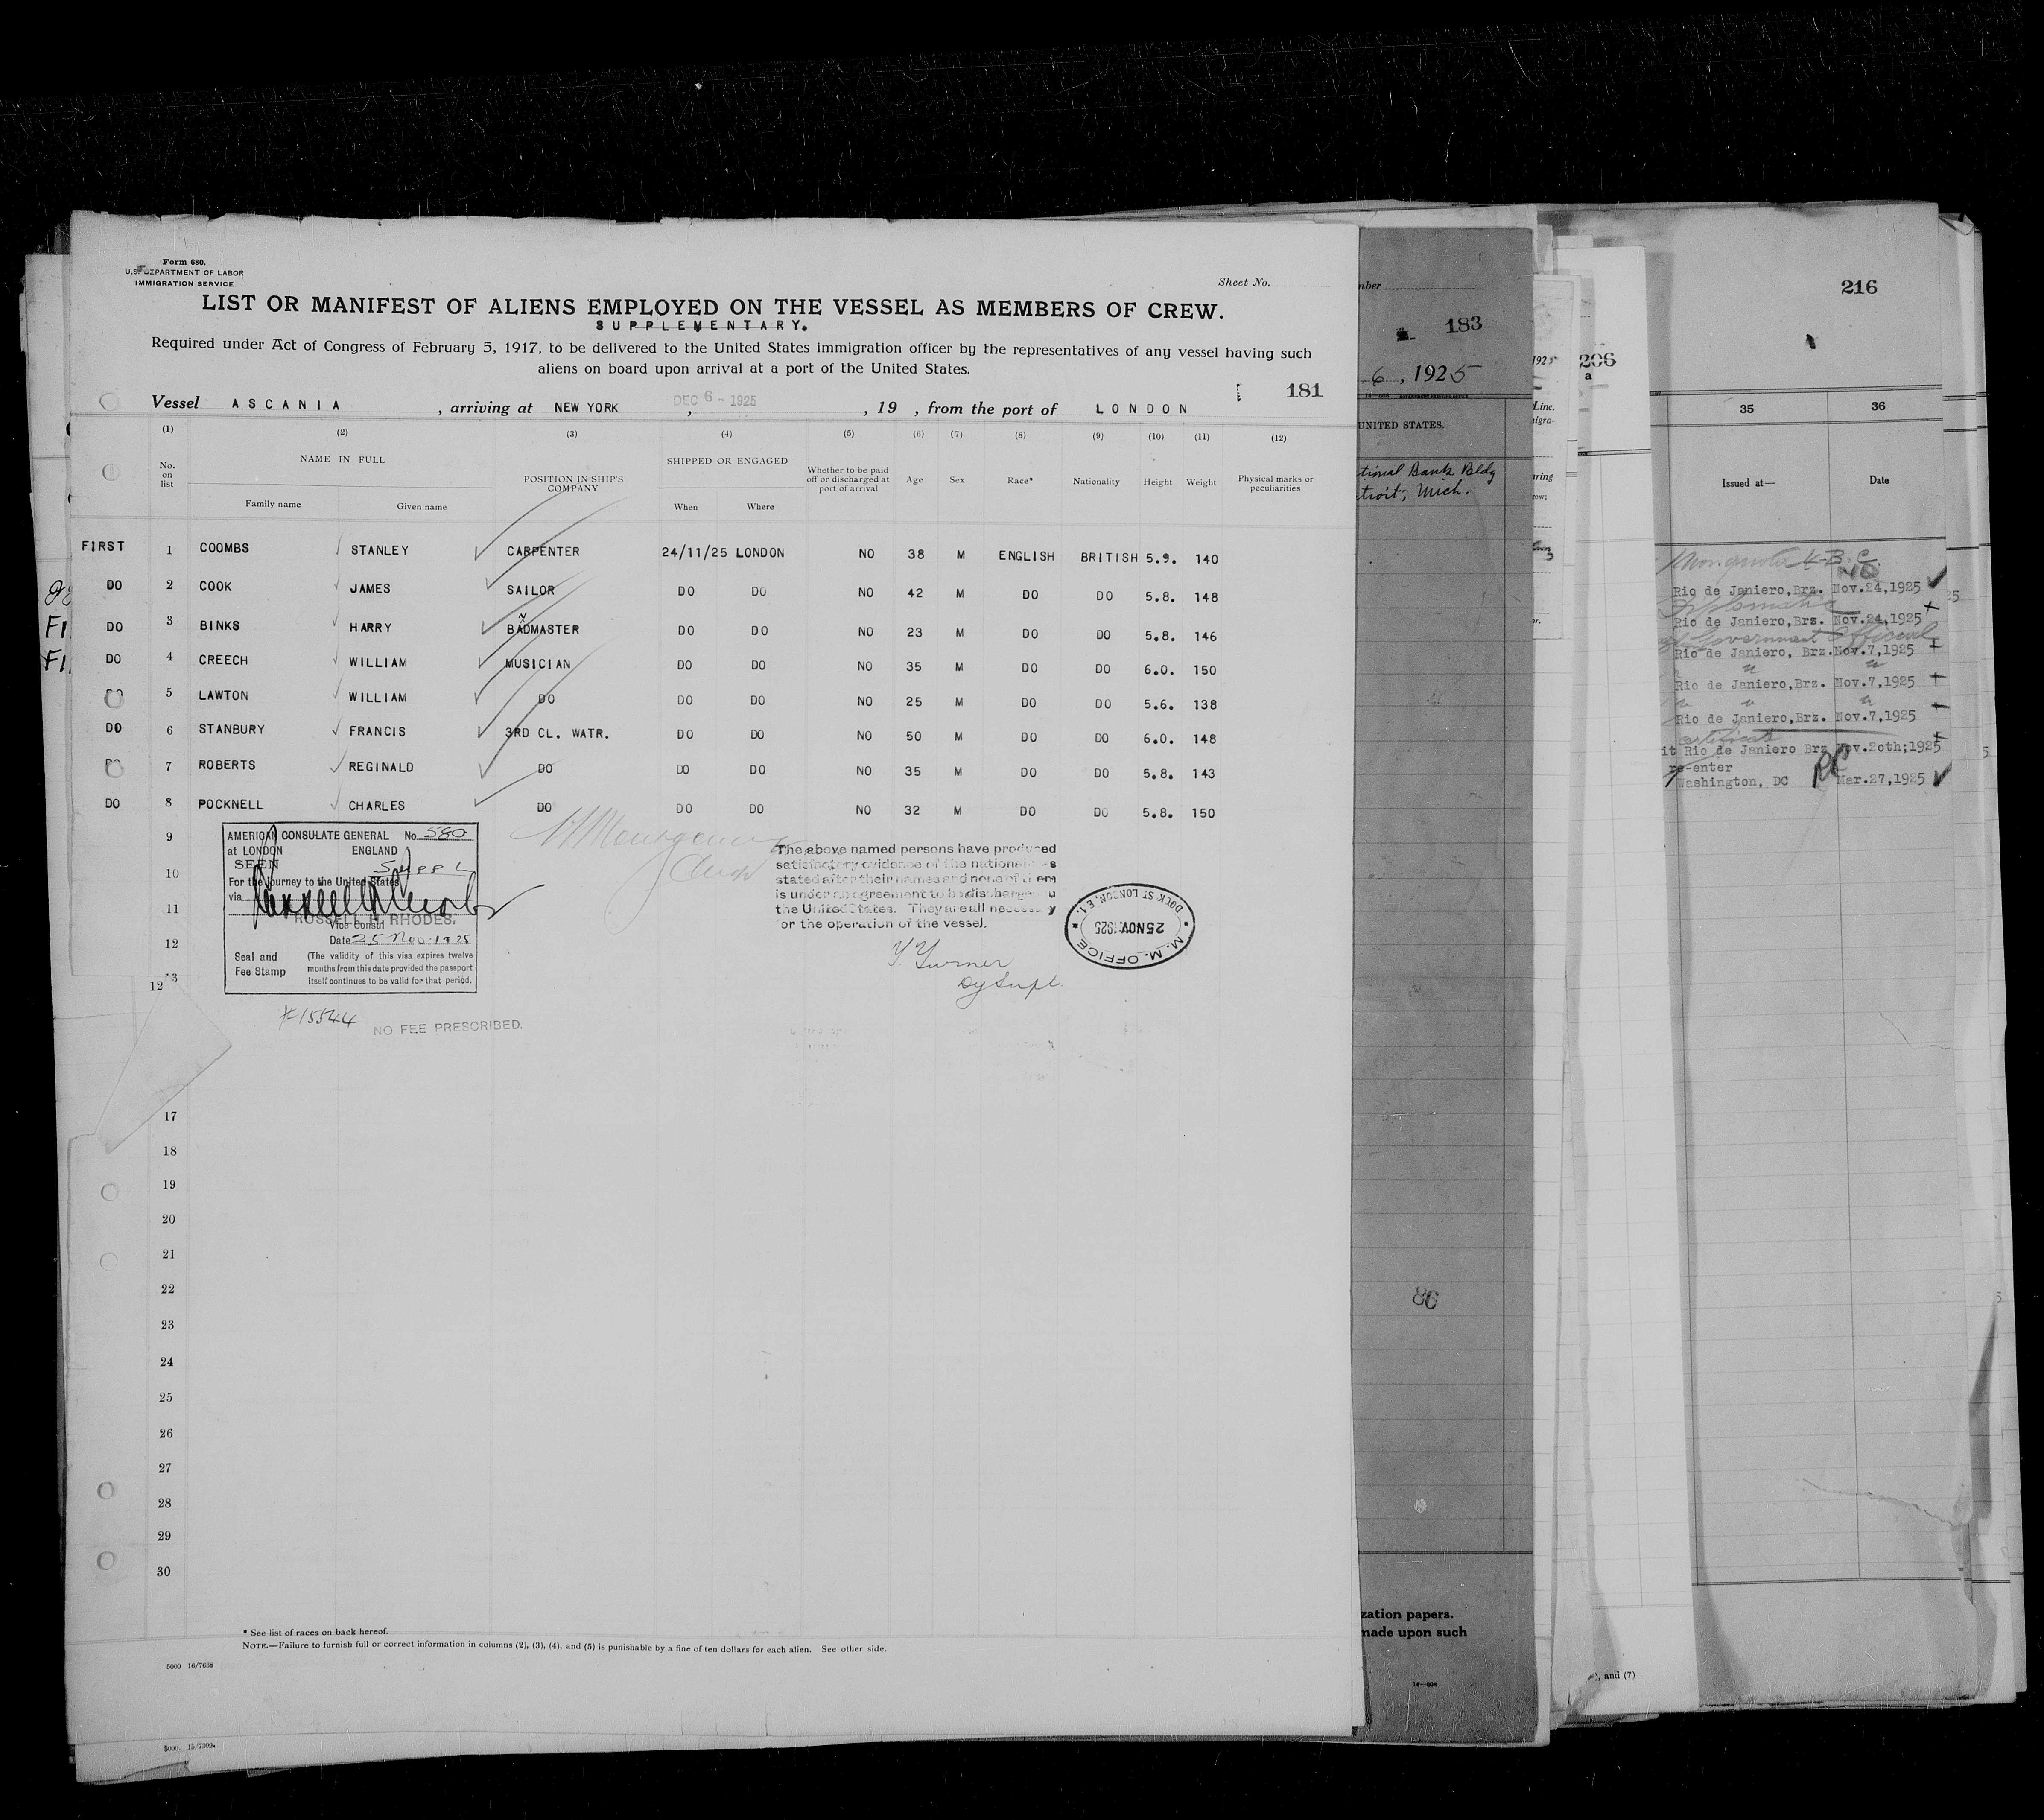 Form 680.
U.S. DEPARTMENT OF LABOR
IMMIGRATION SERVICE
Sheet No.
LIST OR MANIFEST OF ALIENS EMPLOYED ON THE VESSEL AS MEMBERS OF CREW.
SUPPLEMENTARY.
Required under Act of Congress of February 5, 1917, to be delivered to the United States immigration officer by the representatives of any vessel having such
aliens on board upon arrival at a port of the United States.
181
Vessel ASCANIA, arriving at NEW YORK, DEC 6 - 1925, 19 , from the port of LONDON
(1) (2) (3) (4) (5) (6) (7) (8) (9) (10) (11) (12)
No. on list NAME IN FULL POSITION IN SHIP'S COMPANY SHIPPED OR ENGAGED Whether to be paid off or discharged at port of arrival Age Sex Race* Nationality Height Weight Physical marks or peculiarities
Family name Given name When Where
FIRST 1 COOMBS STANLEY CARPENTER 24/11/25 LONDON NO 38 M ENGLISH BRITISH 5.9. 140
DO 2 COOK JAMES SAILOR DO DO NO 42 M DO DO 5.8. 148
DO 3 BINKS HARRY BADMASTER DO DO NO 23 M DO DO 5.8. 146
DO 4 CREECH WILLIAM MUSICIAN DO DO NO 35 M DO DO 6.0. 150
DO 5 LAWTON WILLIAM DO DO DO NO 25 M DO DO 5.6. 138
DO 6 STANBURY FRANCIS 3RD CL. WATR. DO DO NO 50 M DO DO 6.0. 148
DO 7 ROBERTS REGINALD DO DO DO NO 35 M DO DO 5.8. 143
DO 8 POCKNELL CHARLES DO DO DO NO 32 M DO DO 5.8. 150
9
10
11
12
13
12
AMERICAN CONSULATE GENERAL No 580
at LONDON ENGLAND
SEEN Suppl
For the journey to the United States
via
RUSSELL H. RHODES.
Vice Consul
Date 25 Nov. 1925
Seal and Fee Stamp
(The validity of this visa expires twelve
months from this date provided the passport
itself continues to be valid for that period.
#15544
NO FEE PRESCRIBED.
The above named persons have produced
satisfactory evidence of the nationalities
stated after their names and none of them
is under any agreement to be discharged in
the United States. They are all necessary
for the operation of the vessel.
Turner
Dy Supt.
M. M. OFFICE
25 NOV 1925
DOCK ST LONDON, E.1.
17
18
19
20
21
22
23
24
25
26
27
28
29
30
* See list of races on back hereof.
NOTE.—Failure to furnish full or correct information in columns (2), (3), (4), and (5) is punishable by a fine of ten dollars for each alien. See other side.
5000 16/7638
5000. 15/7309.
nber
183
6, 1925
UNITED STATES.
tional Bank Bldg
troit, Mich.
86
zation papers.
made upon such
1925
Line.
migra-
aring
206
a
, and (7)
216
35 36
Issued at— Date
Rio de Janiero, Brz. Nov.24,1925
Diplomatic
Rio de Janiero, Brz. Nov.24,1925
Government Official
Rio de Janiero, Brz. Nov.7,1925
Rio de Janiero, Brz. Nov.7,1925
Rio de Janiero, Brz. Nov.7,1925
certificate
it Rio de Janiero Brz Nov.20th;1925
re-enter
Washington, DC Mar.27,1925